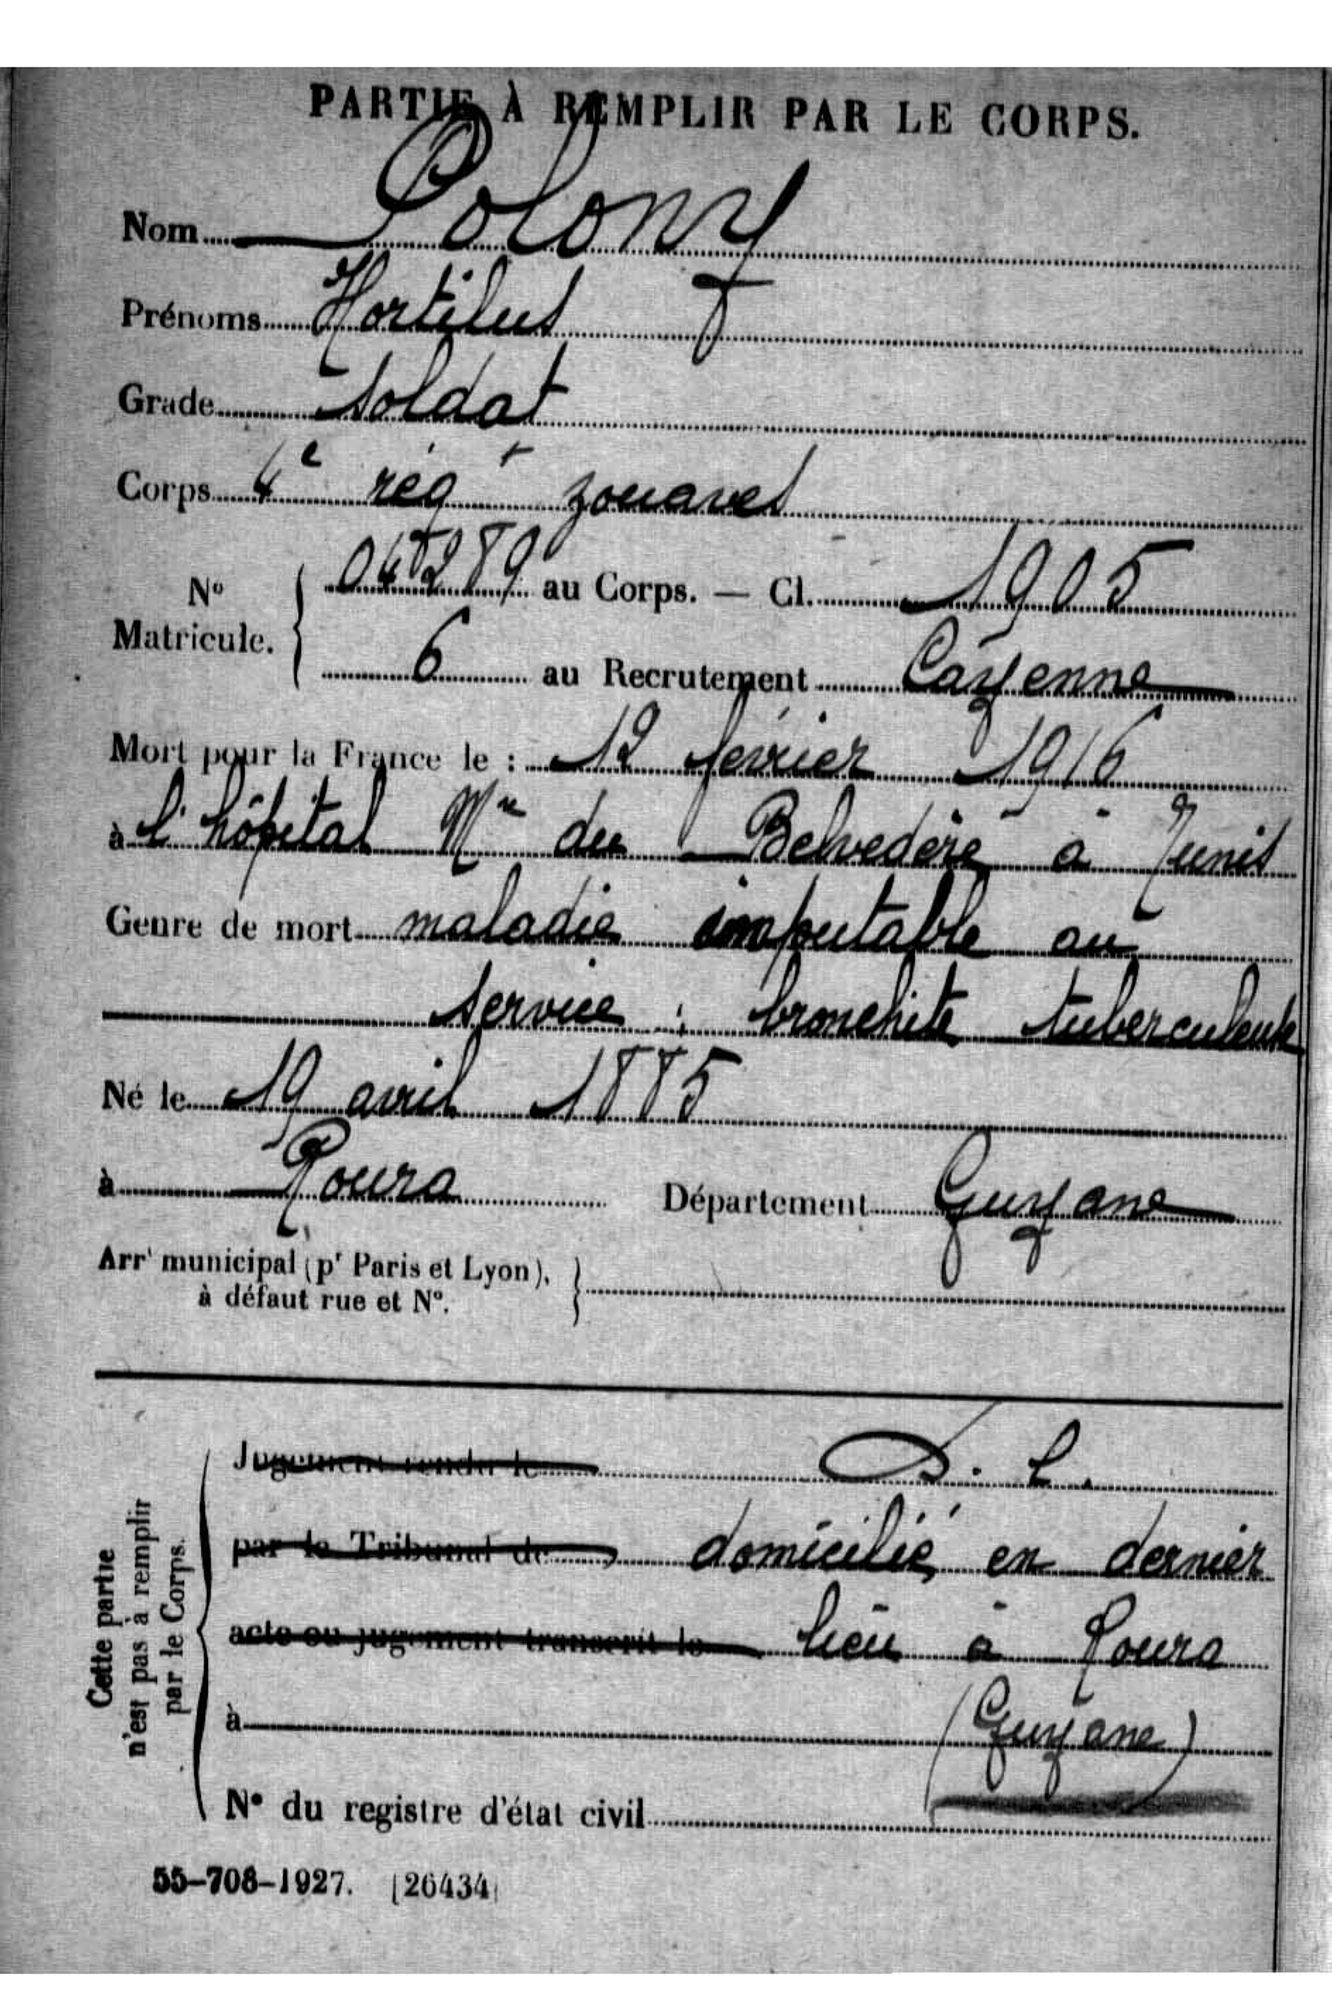 PARTIE À REMPLIR PAR LE CORPS.
Nom Polony
Prénoms Hortilus
Grade Soldat
Corps 4e régt zouaves
No Matricule. 045289 au Corps. — Cl. 1905
6 au Recrutement Cayenne
Mort pour la France le : 12 février 1916
à l'hôpital Mre du Belvédère à Tunis
Genre de mort maladie imputable au
service : bronchite tuberculeuse
Né le 19 avril 1885
à Roura Département Guyane
Arrt municipal (pr Paris et Lyon),
à défaut rue et No.
Cette partie
n'est pas à remplir
par le Corps.
Jugement rendu le D. L.
par le Tribunal de domicilié en dernier
acte ou jugement transcrit le lieu à Roura
à (Guyane)
No du registre d'état civil
55-708-1927. [26434]